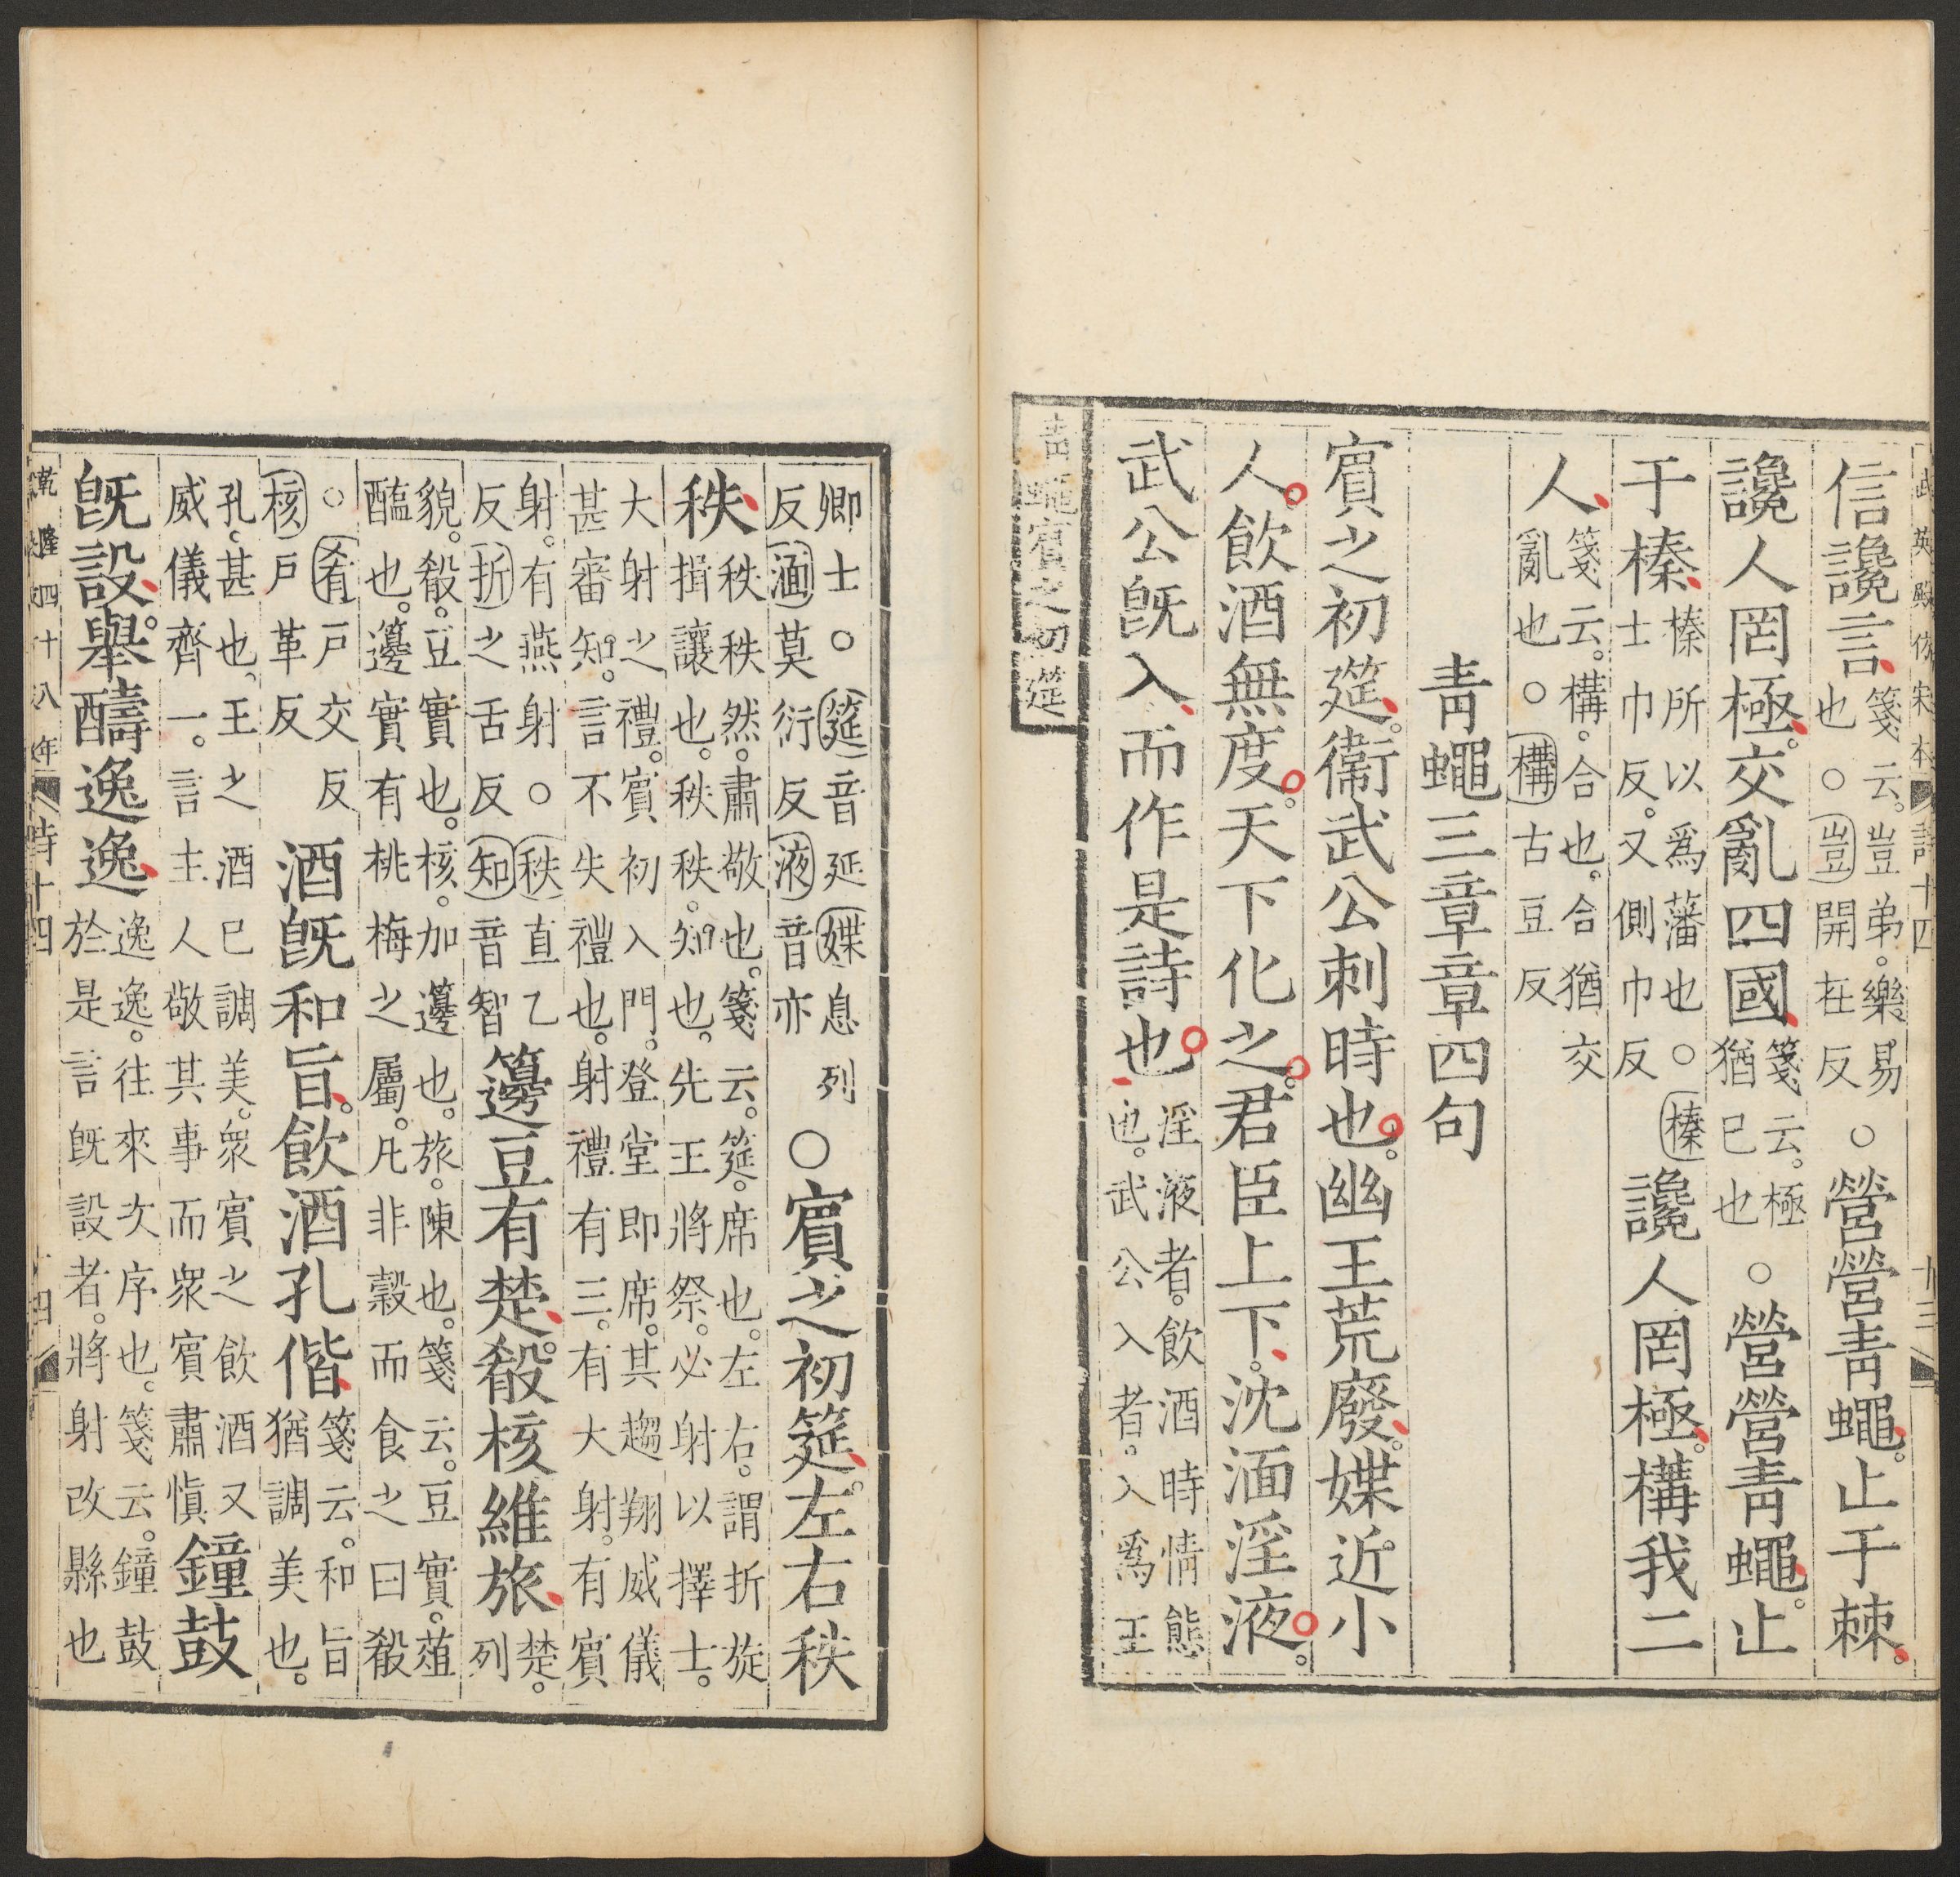 武英殿仿宋本 詩十四 十三
信讒言箋云豈弟樂易也○豈開在反○營營青蠅止于棘
讒人罔極交亂四國箋云極猶已也○營營青蠅止
于榛榛所以為藩也○榛士巾反又側巾反讒人罔極構我二
人箋云構合也合猶交亂也○構古豆反
青蠅三章章四句
賓之初筵衞武公刺時也幽王荒廢媟近小
人飲酒無度天下化之君臣上下沈湎淫液
武公旣入而作是詩也淫液者飲酒時情態也武公入者入為王
青蠅賓之初筵
卿士○筵音延媟息列反湎莫衍反液音亦○賓之初筵左右秩
秩秩秩然肅敬也箋云筵席也左右謂折旋揖讓也秩秩知也先王將祭必射以擇士
大射之禮賓初入門登堂即席其趨翔威儀甚審知言不失禮也射禮有三有大射有賓
射有燕射○秩直乙反折之舌反知音智籩豆有楚殽核維旅楚列
貌殽豆實也核加籩也旅陳也箋云豆實菹醢也籩實有桃梅之屬凡非穀而食之曰殽
○肴戶交反核戶革反酒旣和旨飲酒孔偕箋云和旨猶調美也
孔甚也王之酒已調美衆賓之飲酒又威儀齊一言主人敬其事而衆賓肅愼鐘鼓
旣設舉醻逸逸逸逸往來次序也箋云鐘鼓於是言旣設者將射改縣也
乾隆四十八年 詩十四 十四